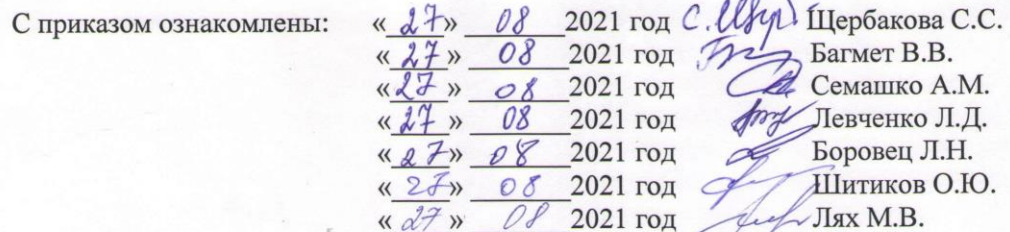 С приказом ознакомлены: «27» 08 2021 год С. Щербакова С.С.
«27» 08 2021 год Багмет В.В.
«27» 08 2021 год Семашко А.М.
«27» 08 2021 год Левченко Л.Д.
«27» 08 2021 год Боровец Л.Н.
«27» 08 2021 год Шитиков О.Ю.
«27» 08 2021 год Лях М.В.